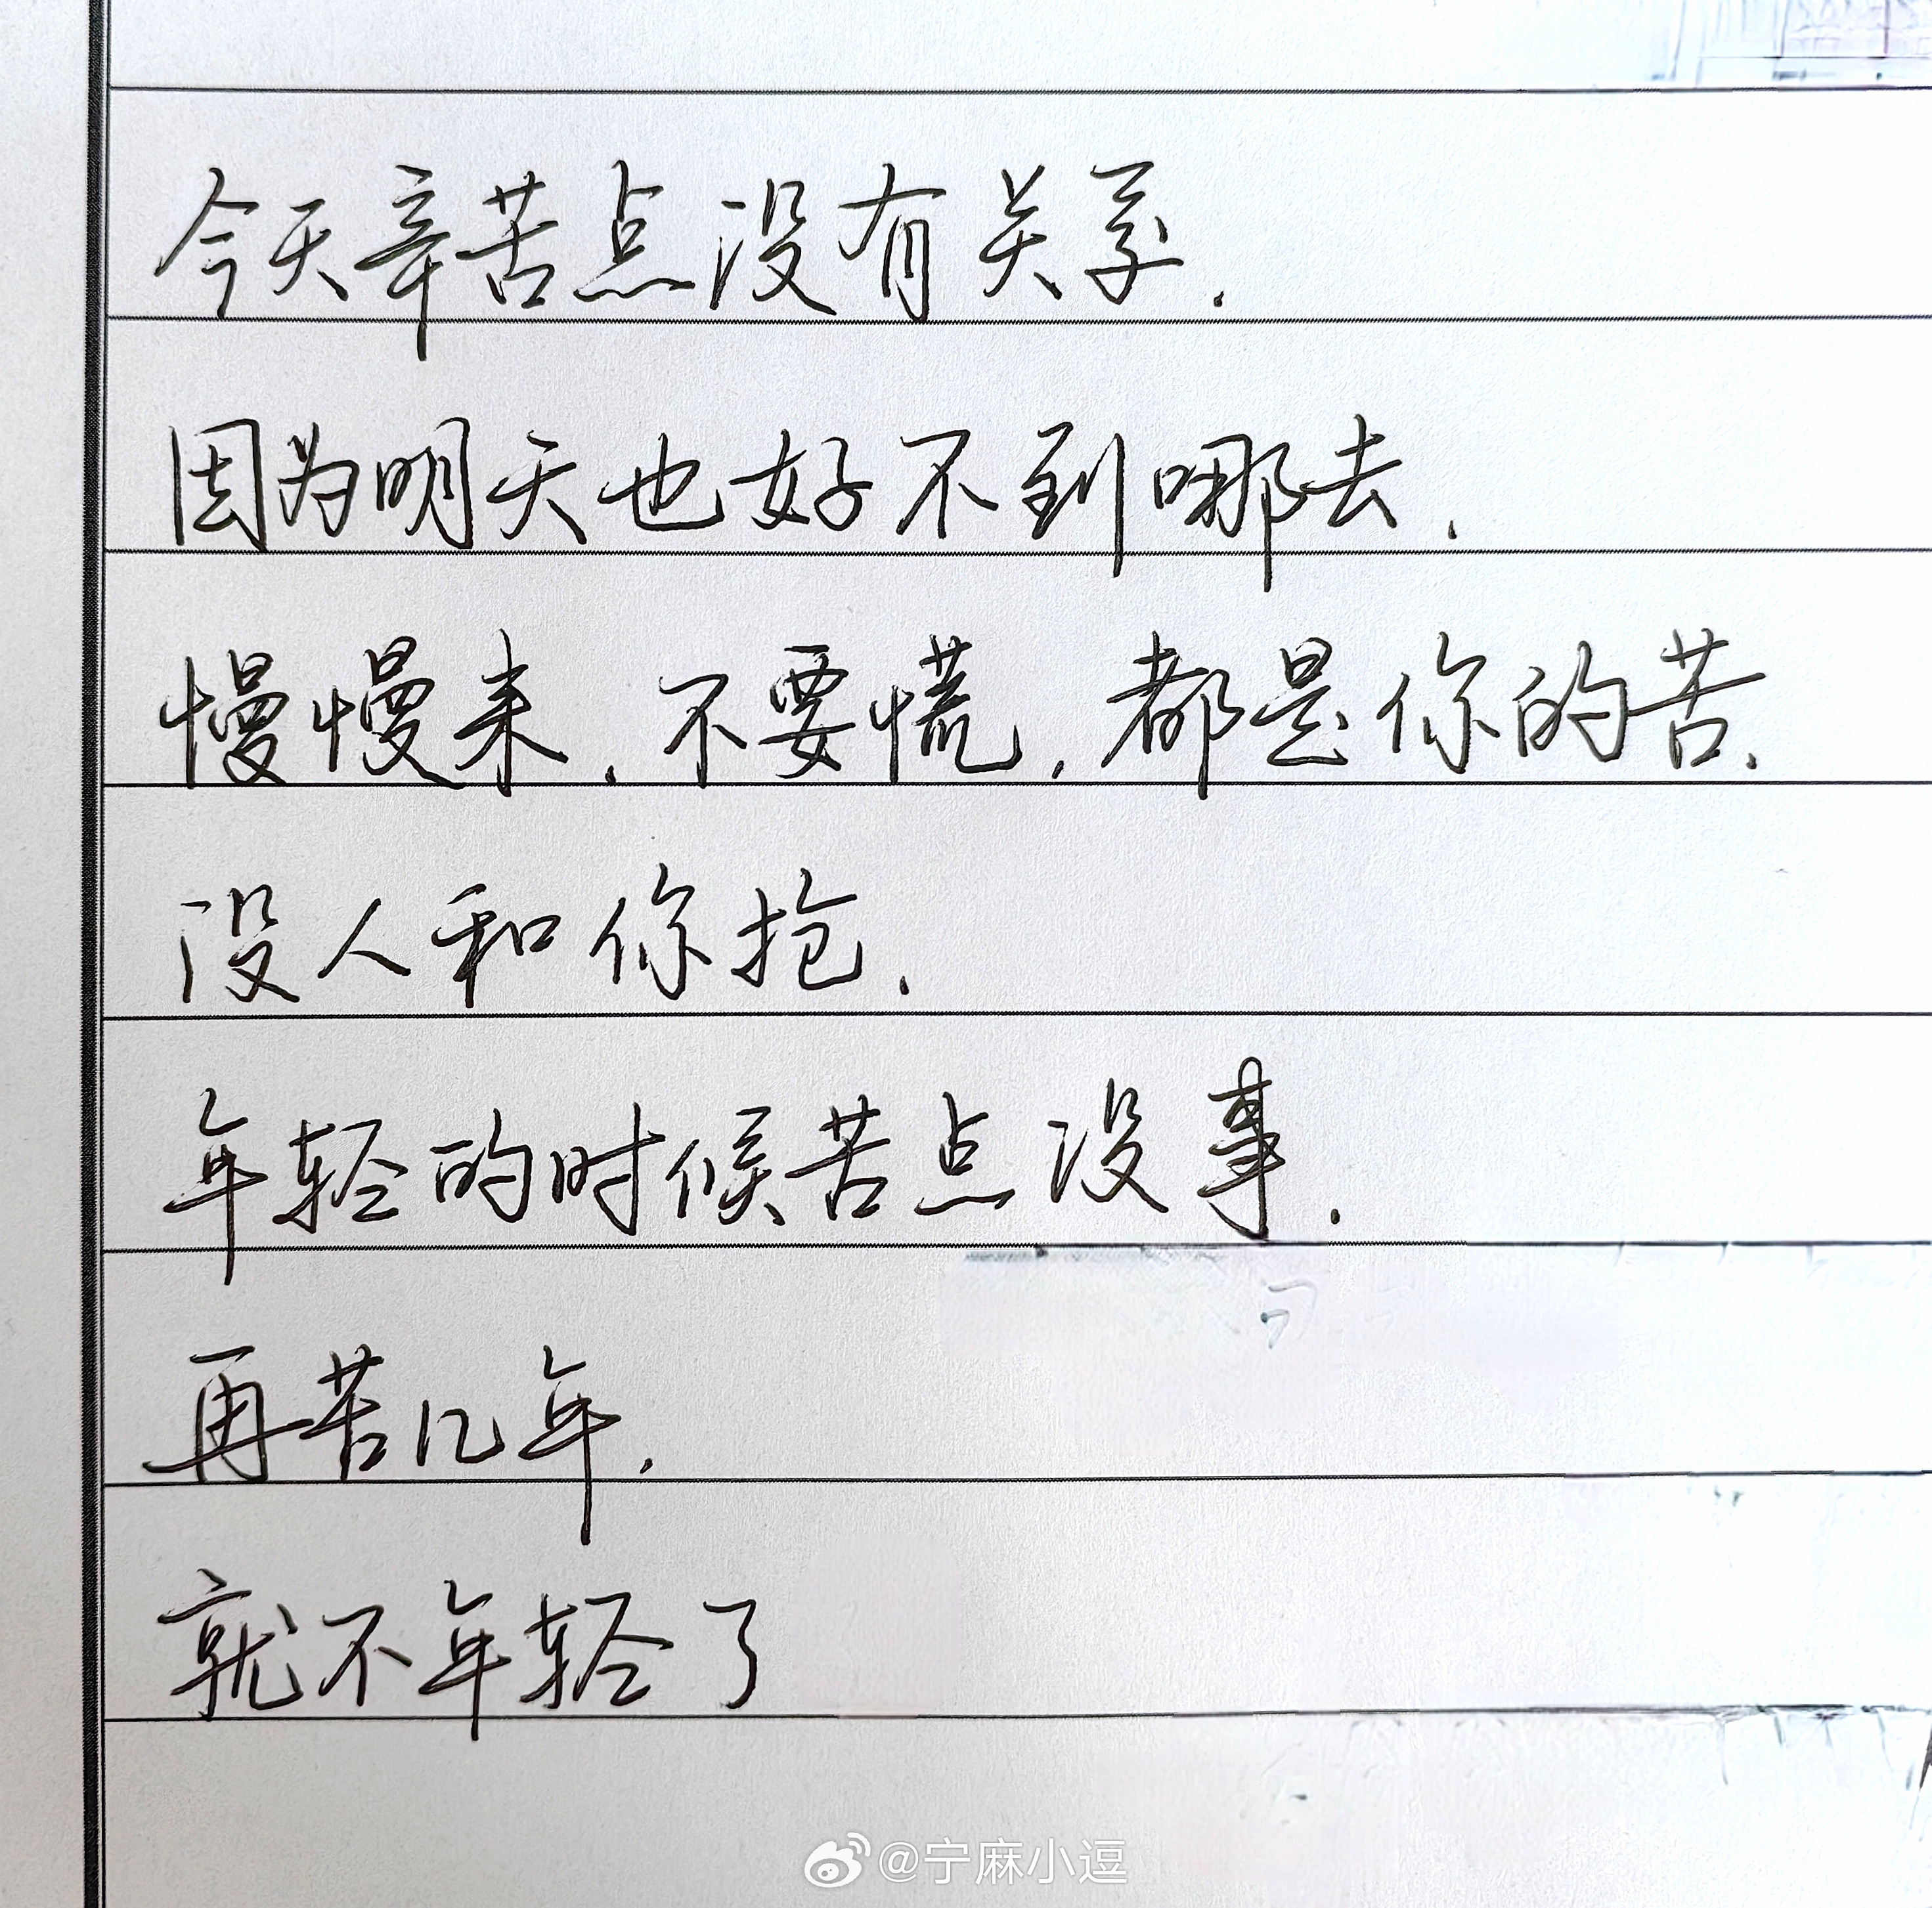 今天辛苦点没有关系.
因为明天也好不到哪去.
慢慢来.不要慌.都是你的苦.
没人和你抢.
年轻的时候苦点没事.
再苦几年.
就不年轻了
@宁麻小逗